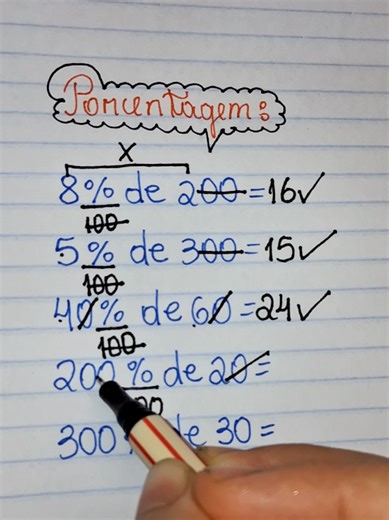 Porcentagem:
x
8% de 200 = 16✓
100
5% de 300 = 15✓
100
40% de 60 = 24✓
100
200% de 20 =
300 de 30 =